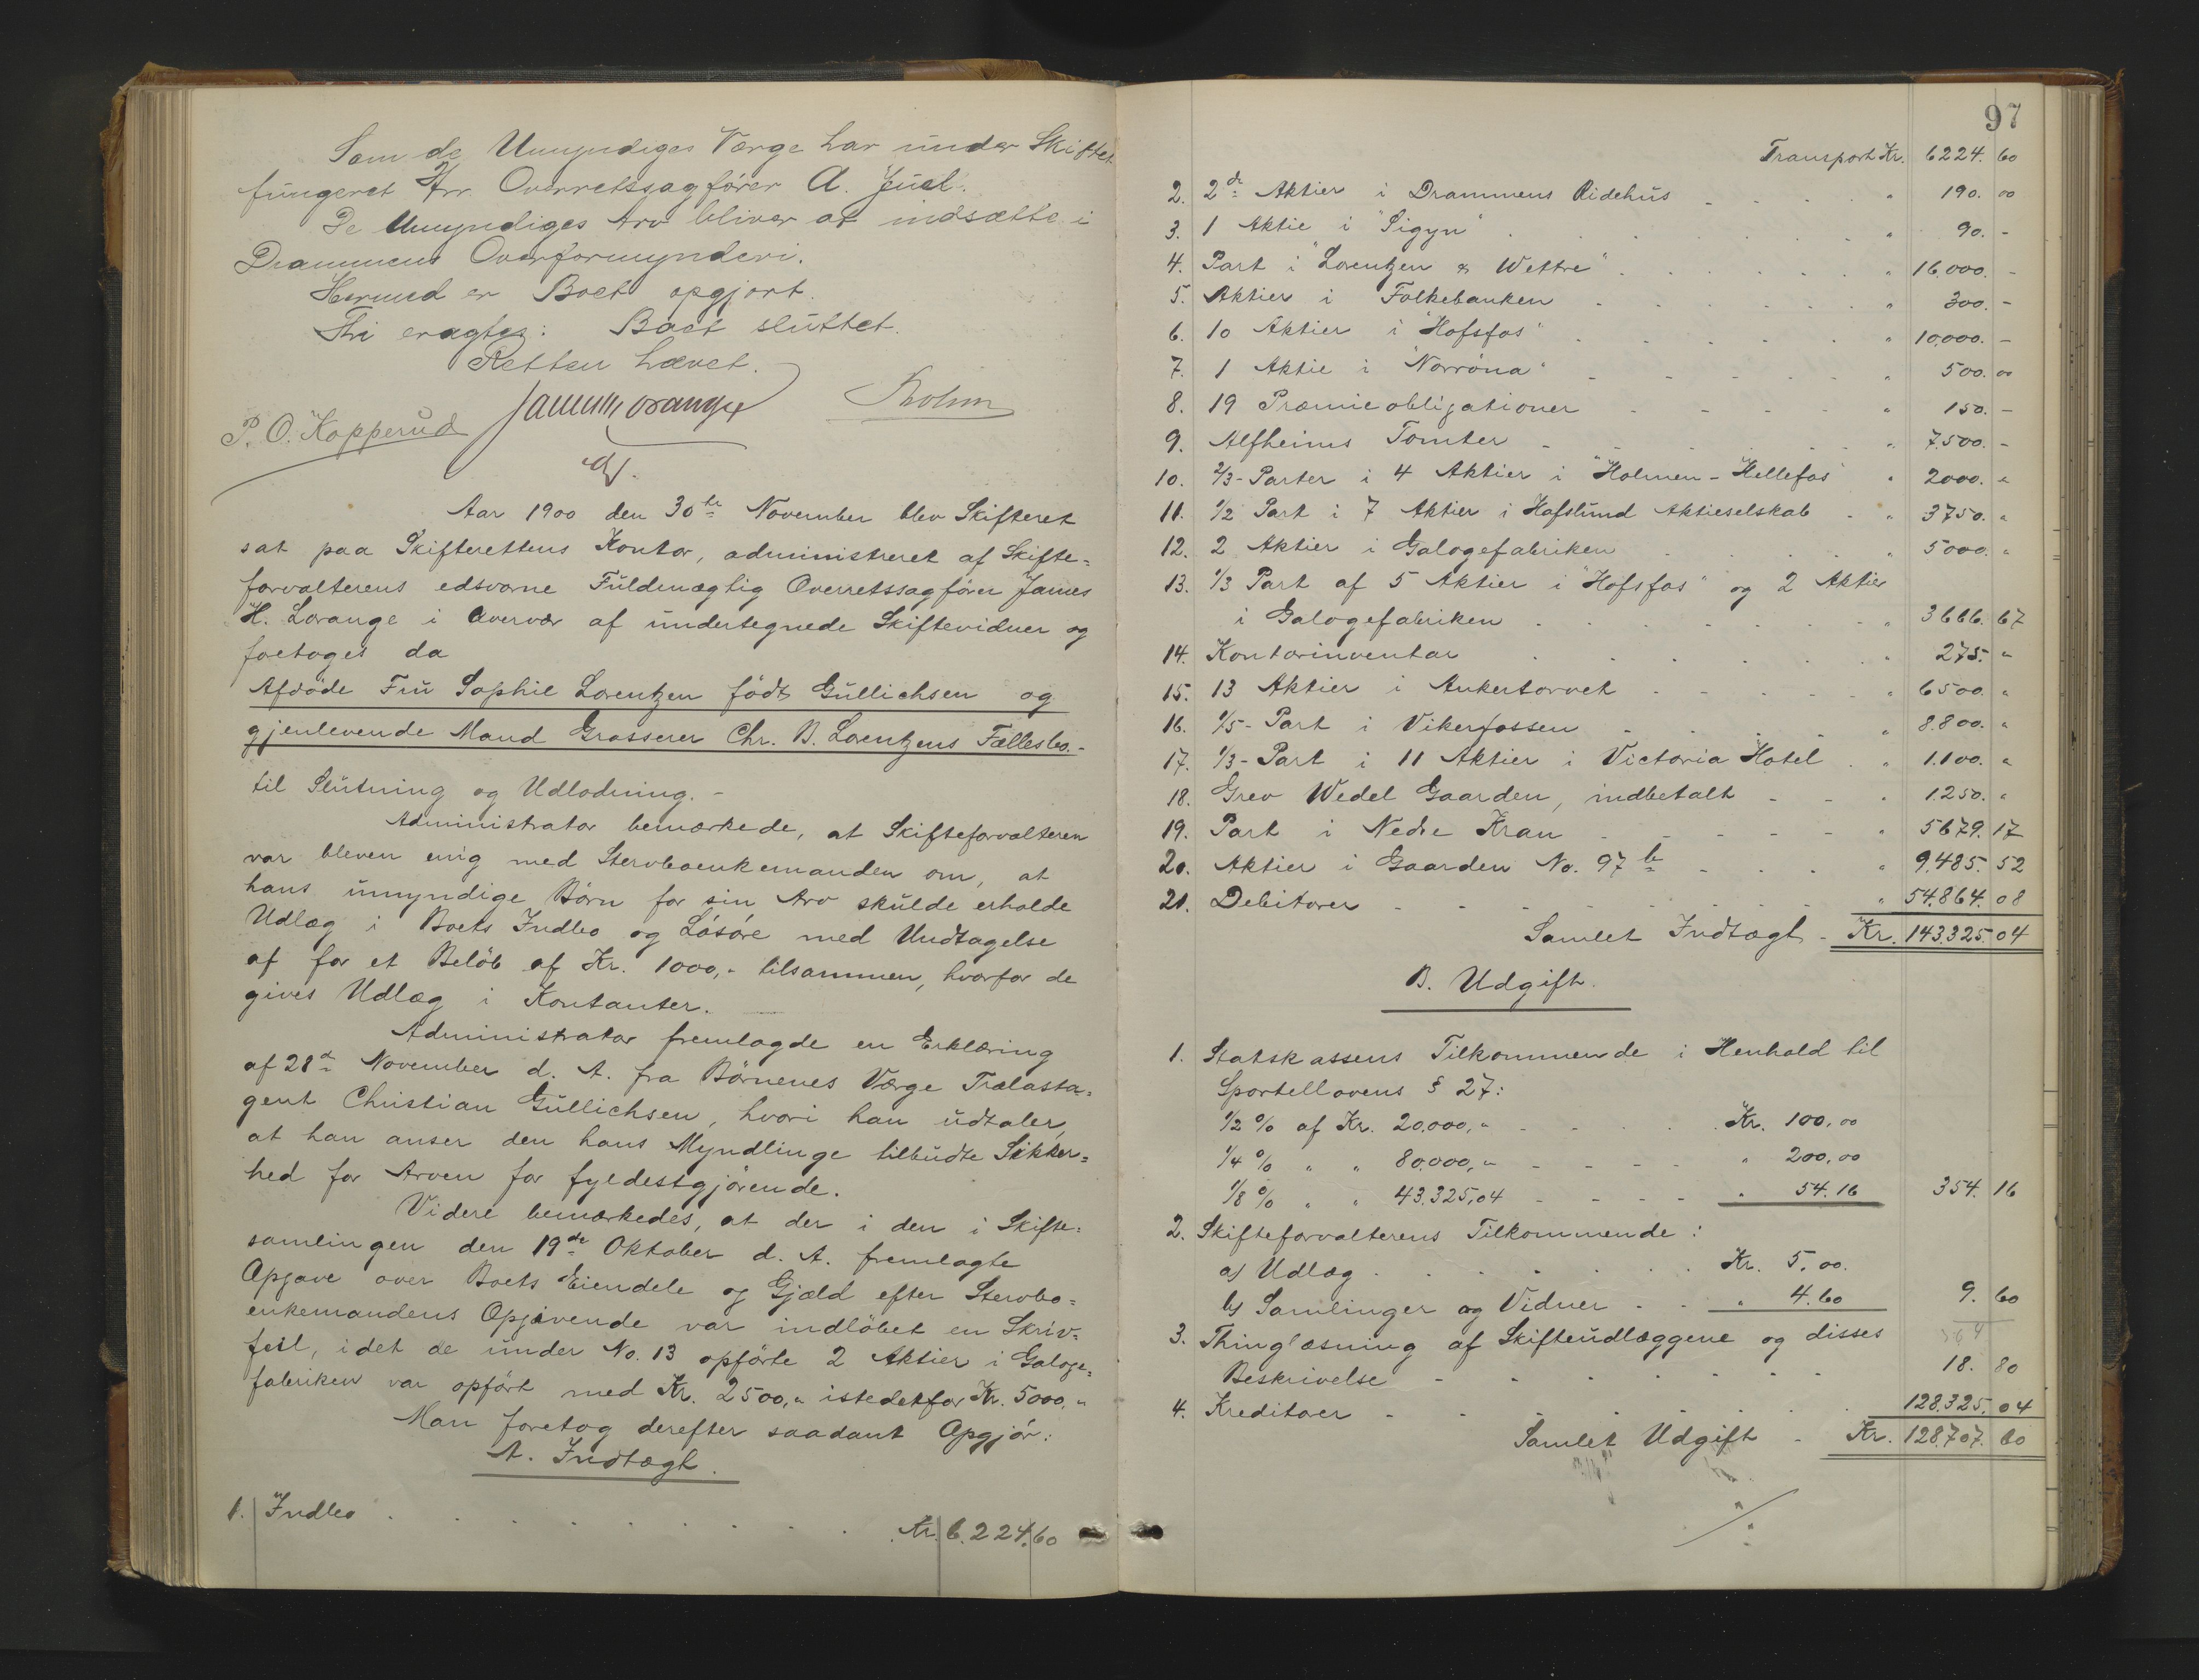 Som de Umyndiges Værge har under Skiftet
fungeret Hrr. Overretssagfører A. Juel.
De Umyndiges Arv bliver at indsætte i
Drammens Overformynderi.
Hermed er Boet opgjort.
Thi eragtes: Boet sluttet.
Retten hævet.
P. O. Kopperud
Aar 1900 den 30te November blev Skifteret
sat paa Skifterettens Kontor, administreret af Skifte-
forvalterens edsvorne Fuldmægtig Overretssagfører James
H. Lorange i Overvær af undertegnede Skiftevidner og
foretoges da
Afdøde Fru Sophie Lorentzen født Gullichsen og
gjenlevende Mand Grosserer Chr. B. Lorentzens Fællesbo.-
til Slutning og Udlodning.-
Administrator bemærkede, at Skifteforvalteren
var bleven enig med Stervboenkemanden om, at
hans umyndige Børn for sin Arv skulde erholde
Udlæg i Boets Indbo og Løsøre med Undtagelse
af for et Beløb af Kr. 1000,- tilsammen, hvorfor de
gives Udlæg i Kontanter.
Administrator fremlagde en Erklæring
af 28d November d. A. fra Børnenes Værge Trælasta-
gent Christian Gullichsen, hvori han udtaler,
at han anser den hans Myndlinge tilbudte Sikker-
hed for Arven for fyldestgjørende.
Videre bemærkedes, at der i den i Skifte-
samlingen den 19de Oktober d. A. fremlagte
Opgave over Boets Eiendele og Gjæld efter Stervbo-
enkemandens Opgivende var indløbet en Skriv-
feil, idet de under No. 13 opførte 2 Aktier i Galoge-
fabriken var opført med Kr. 2500,- istedetfor Kr. 5000,-
Man foretog derefter saadant Opgjør:
A. Indtægt.
1. Indbo . . . Kr. 6.224.60
97
Transport Kr. 6224. 60
2. 2de Aktier i Drammens Ridehus - - - " 190. 00
3. 1 Aktie i "Sigyn" . . . " 90. -
4. Part i "Lorentzen & Wettre" . . . " 16.000. -
5. Aktier i Folkebanken . . . " 300. -
6. 10 Aktier i "Hofsfos" . . . " 10.000. -
7. 1 Aktie i "Norröna" - - - " 500. 00
8. 19 Præmieobligationer - - - " 150. -
9. Alfheims Tomter - - - " 7.500. -
10. 2/3-Parter i 4 Aktier i "Holmen-Hellefos" " 2000. "
11. 1/2 Part i 7 Aktier i Hafslund Aktieselskab - " 3750. "
12. 2 Aktier i Galogefabriken . . . " 5000. "
13. 1/3 Part af 5 Aktier i "Hofsfos" og 2 Aktier
i Galogefabriken . . . " 3666. 67
14. Kontorinventar . . . " 275. "
15. 13 Aktier i Ankertorvet - - - " 6500. "
16. 1/5-Part i Vikerfossen - - - " 8.800. "
17. 1/3-Part i 11 Aktier i Victoria Hotel . " 1.100. "
18. Grev Wedel Gaarden, indbetalt - - " 1.250. "
19. Part i Nedre Kran - - - " 5679. 17
20. Aktier i Gaarden No. 97 b - - - " 9.485. 52
21. Debitorer - - - " 54.864. 08
Samlet Indtægt - Kr. 143.325. 04
B. Udgift.
1. Statskassens Tilkommende i Henhold til
Sportellovens § 27:
1/2 % af Kr. 20.000,- - - Kr. 100,00
1/4 % " " 80.000,- - - " 200,00
1/8 % " " 43.325,04 - - " 54.16 354. 16
2. Skifteforvalterens Tilkommende:
a) Udlæg . . . Kr. 5.00.
b) Samlinger og Vidner . . " 4.60 9. 60
3. Thinglæsning af Skifteudlæggene og disses
Beskrivelse - - - 18. 80
4. Kreditorer - - - 128.325. 04
Samlet Udgift - Kr. 128.707. 60